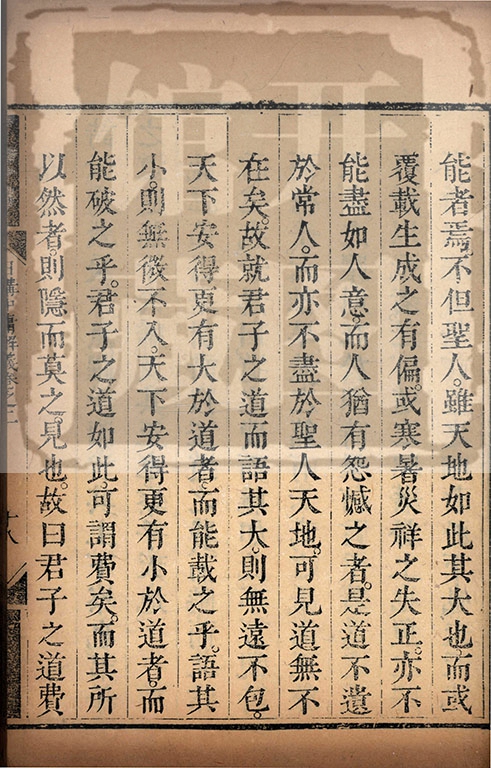 能者焉。不但聖人。雖天地如此其大也。而或
覆載生成之有偏。或寒暑災祥之失正。亦不
能盡如人意。而人猶有怨憾之者。是道不遺
於常人。而亦不盡於聖人天地。可見道無不
在矣。故就君子之道而語其大。則無遠不包。
天下安得更有大於道者而能載之乎。語其
小。則無微不入。天下安得更有小於道者而
能破之乎。君子之道如此。可謂費矣。而其所
以然者。則隱而莫之見也。故曰君子之道費
日講四書解義卷之二
十八